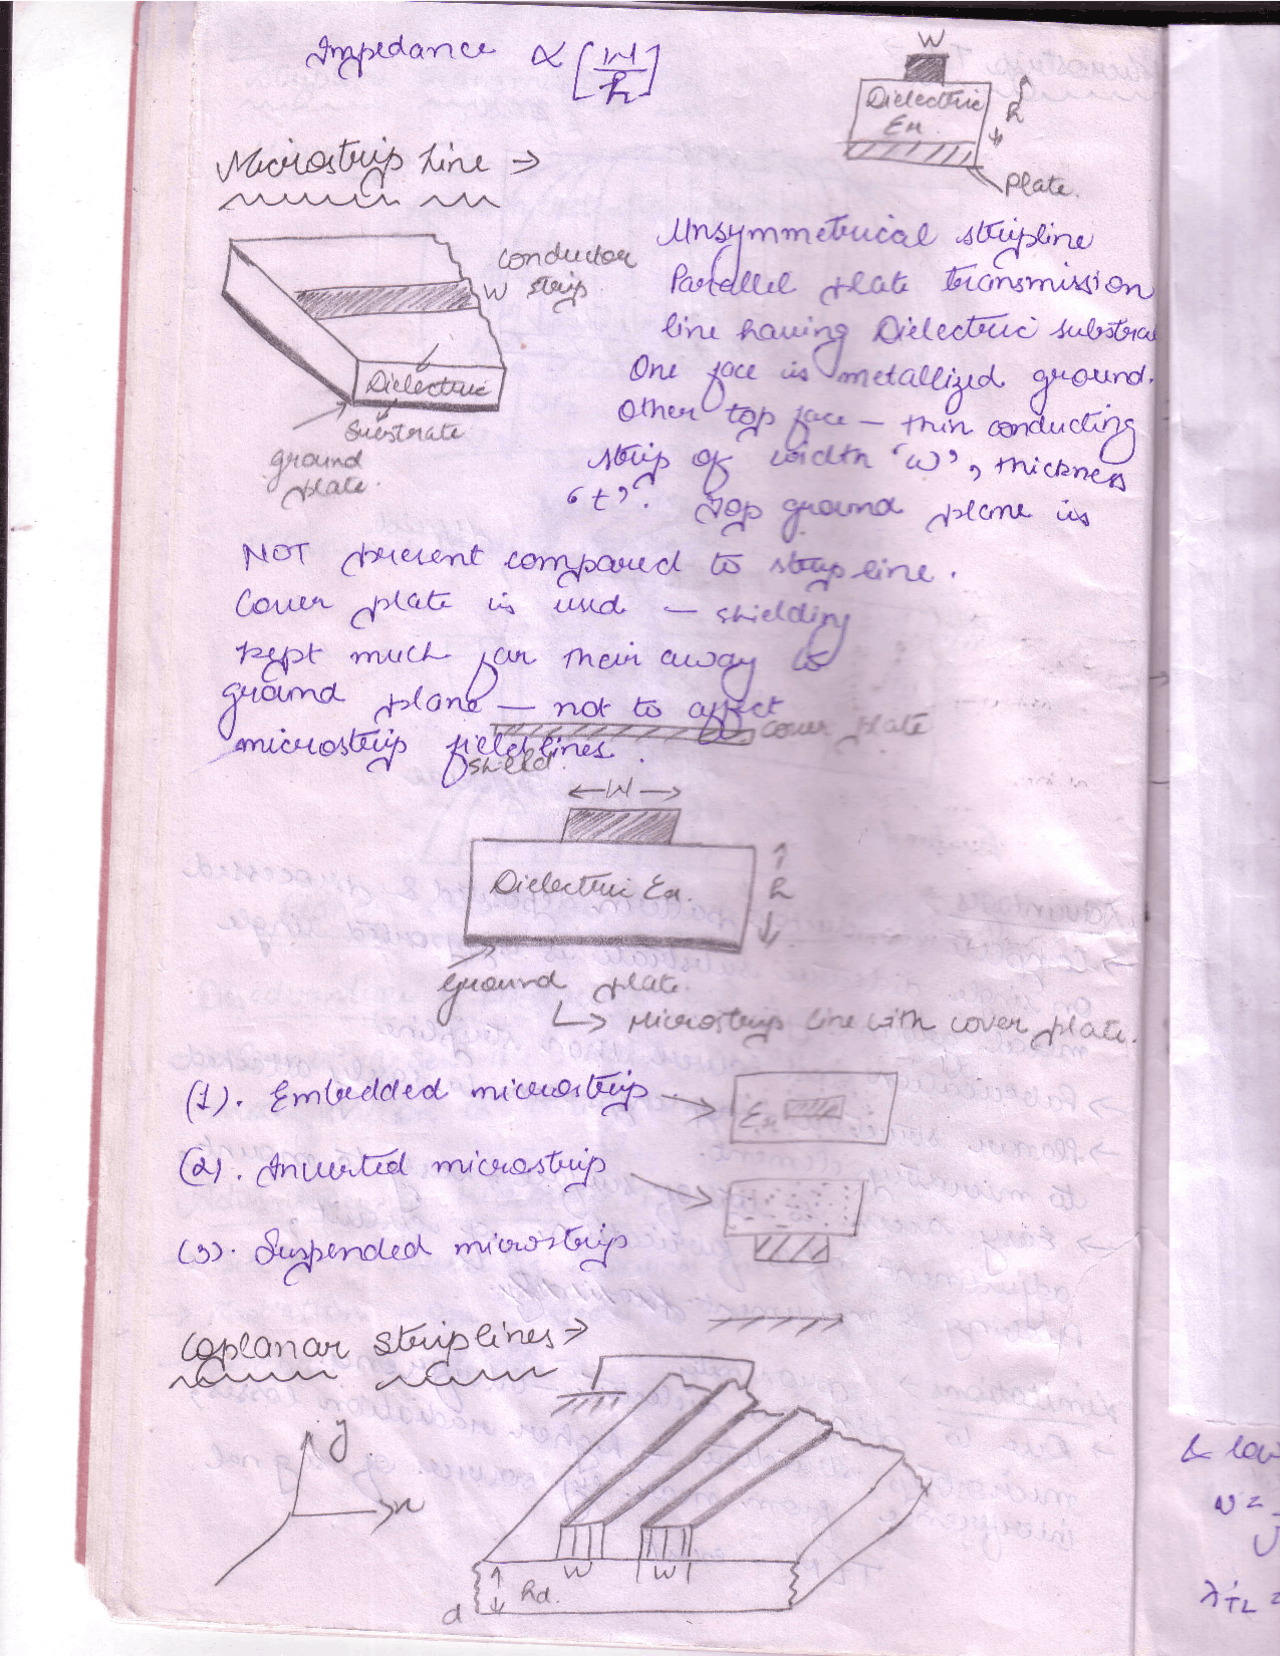 Impedance ∝ [W/h]
W
Dielectric
Er.
h
Plate.
Microstrip Line →
conductor
strip
W
Dielectric
Substrate
ground
plate.
Unsymmetrical stripline
Parallel plate transmission
line having Dielectric substra
One face is metallized ground.
Other top face — thin conducting
strip of width 'w', thickness
't'. Top ground plane is
NOT present compared to strip line.
Cover plate is used — shielding
kept much far their away to
ground plane — not to affect
microstrip field lines.
cover plate
shield.
← W →
Dielectric Er.
h
Ground plate.
↳ Microstrip line with cover plate.
(1). Embedded microstrip
Er
(2). Inverted microstrip
(3). Suspended microstrip
Coplanar Striplines →
y
x
W W
d hd.
& low
λ'TL =